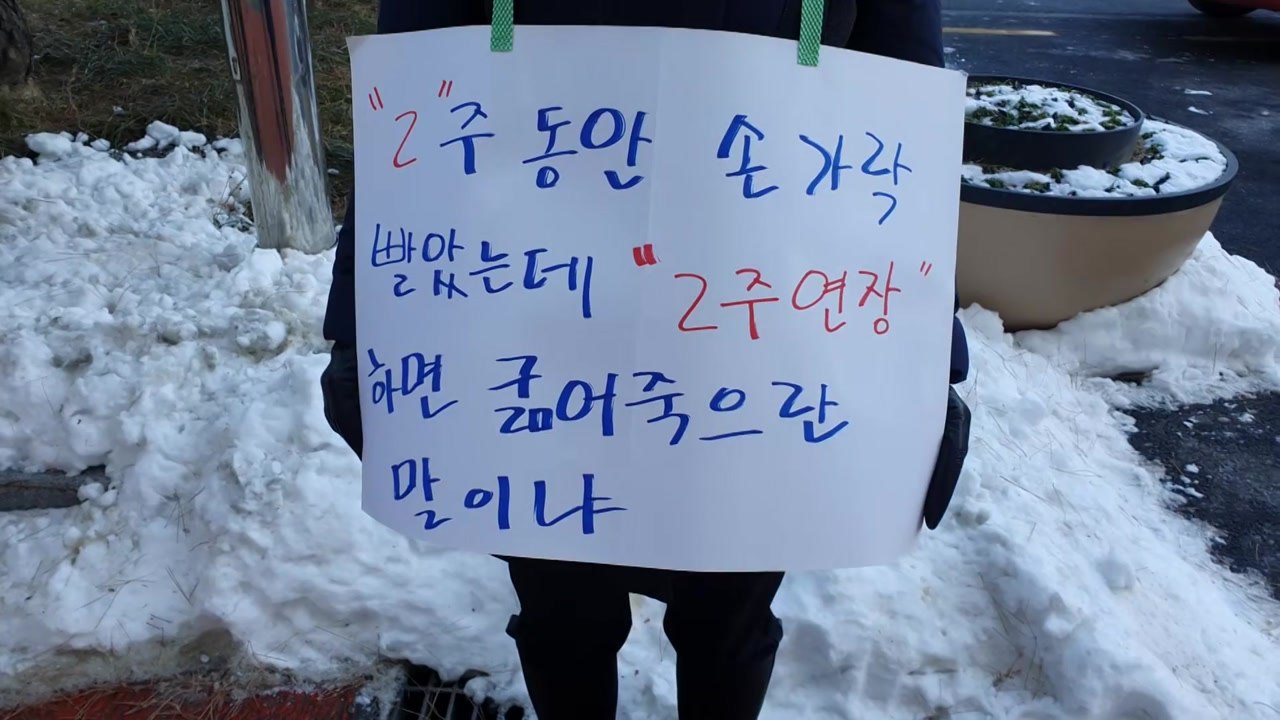 "2"주 동안 손가락
빨았는데 "2주연장"
하면 굶어죽으란
말이냐